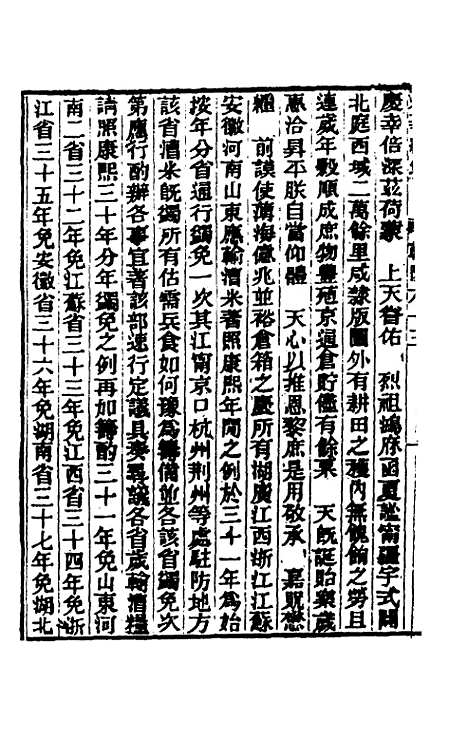 慶幸倍深茲荷蒙　上天眷佑　烈祖鴻庥函夏謐甯疆宇式闢
北庭西域二萬餘里咸隸版圖外有耕田之穫內無餽餉之勞且
連歲年穀順成庶物豐殖京通倉貯儘有餘粟　天既誕貽樂歲
惠洽昇平朕自當仰體　天心以推恩黎庶是用敬承　嘉貺懋
繩　前謨使薄海億兆並裕倉箱之慶所有湖廣江西浙江江蘇
安徽河南山東應輸漕米著照康熙年閒之例於三十一年為始
按年分省通行蠲免一次其江甯京口杭州荆州等處駐防地方
該省漕米既蠲所有估需兵食如何豫為籌備並各該省蠲免次
第應行酌辦各事宜著該部速行定議具奏尋議各省歲輸漕糧
請照康熙三十年分年蠲免之例再加籌酌三十一年免山東河
南二省三十二年免江蘇省三十三年免江西省三十四年免浙
江省三十五年免安徽省三十六年免湖南省三十七年免湖北